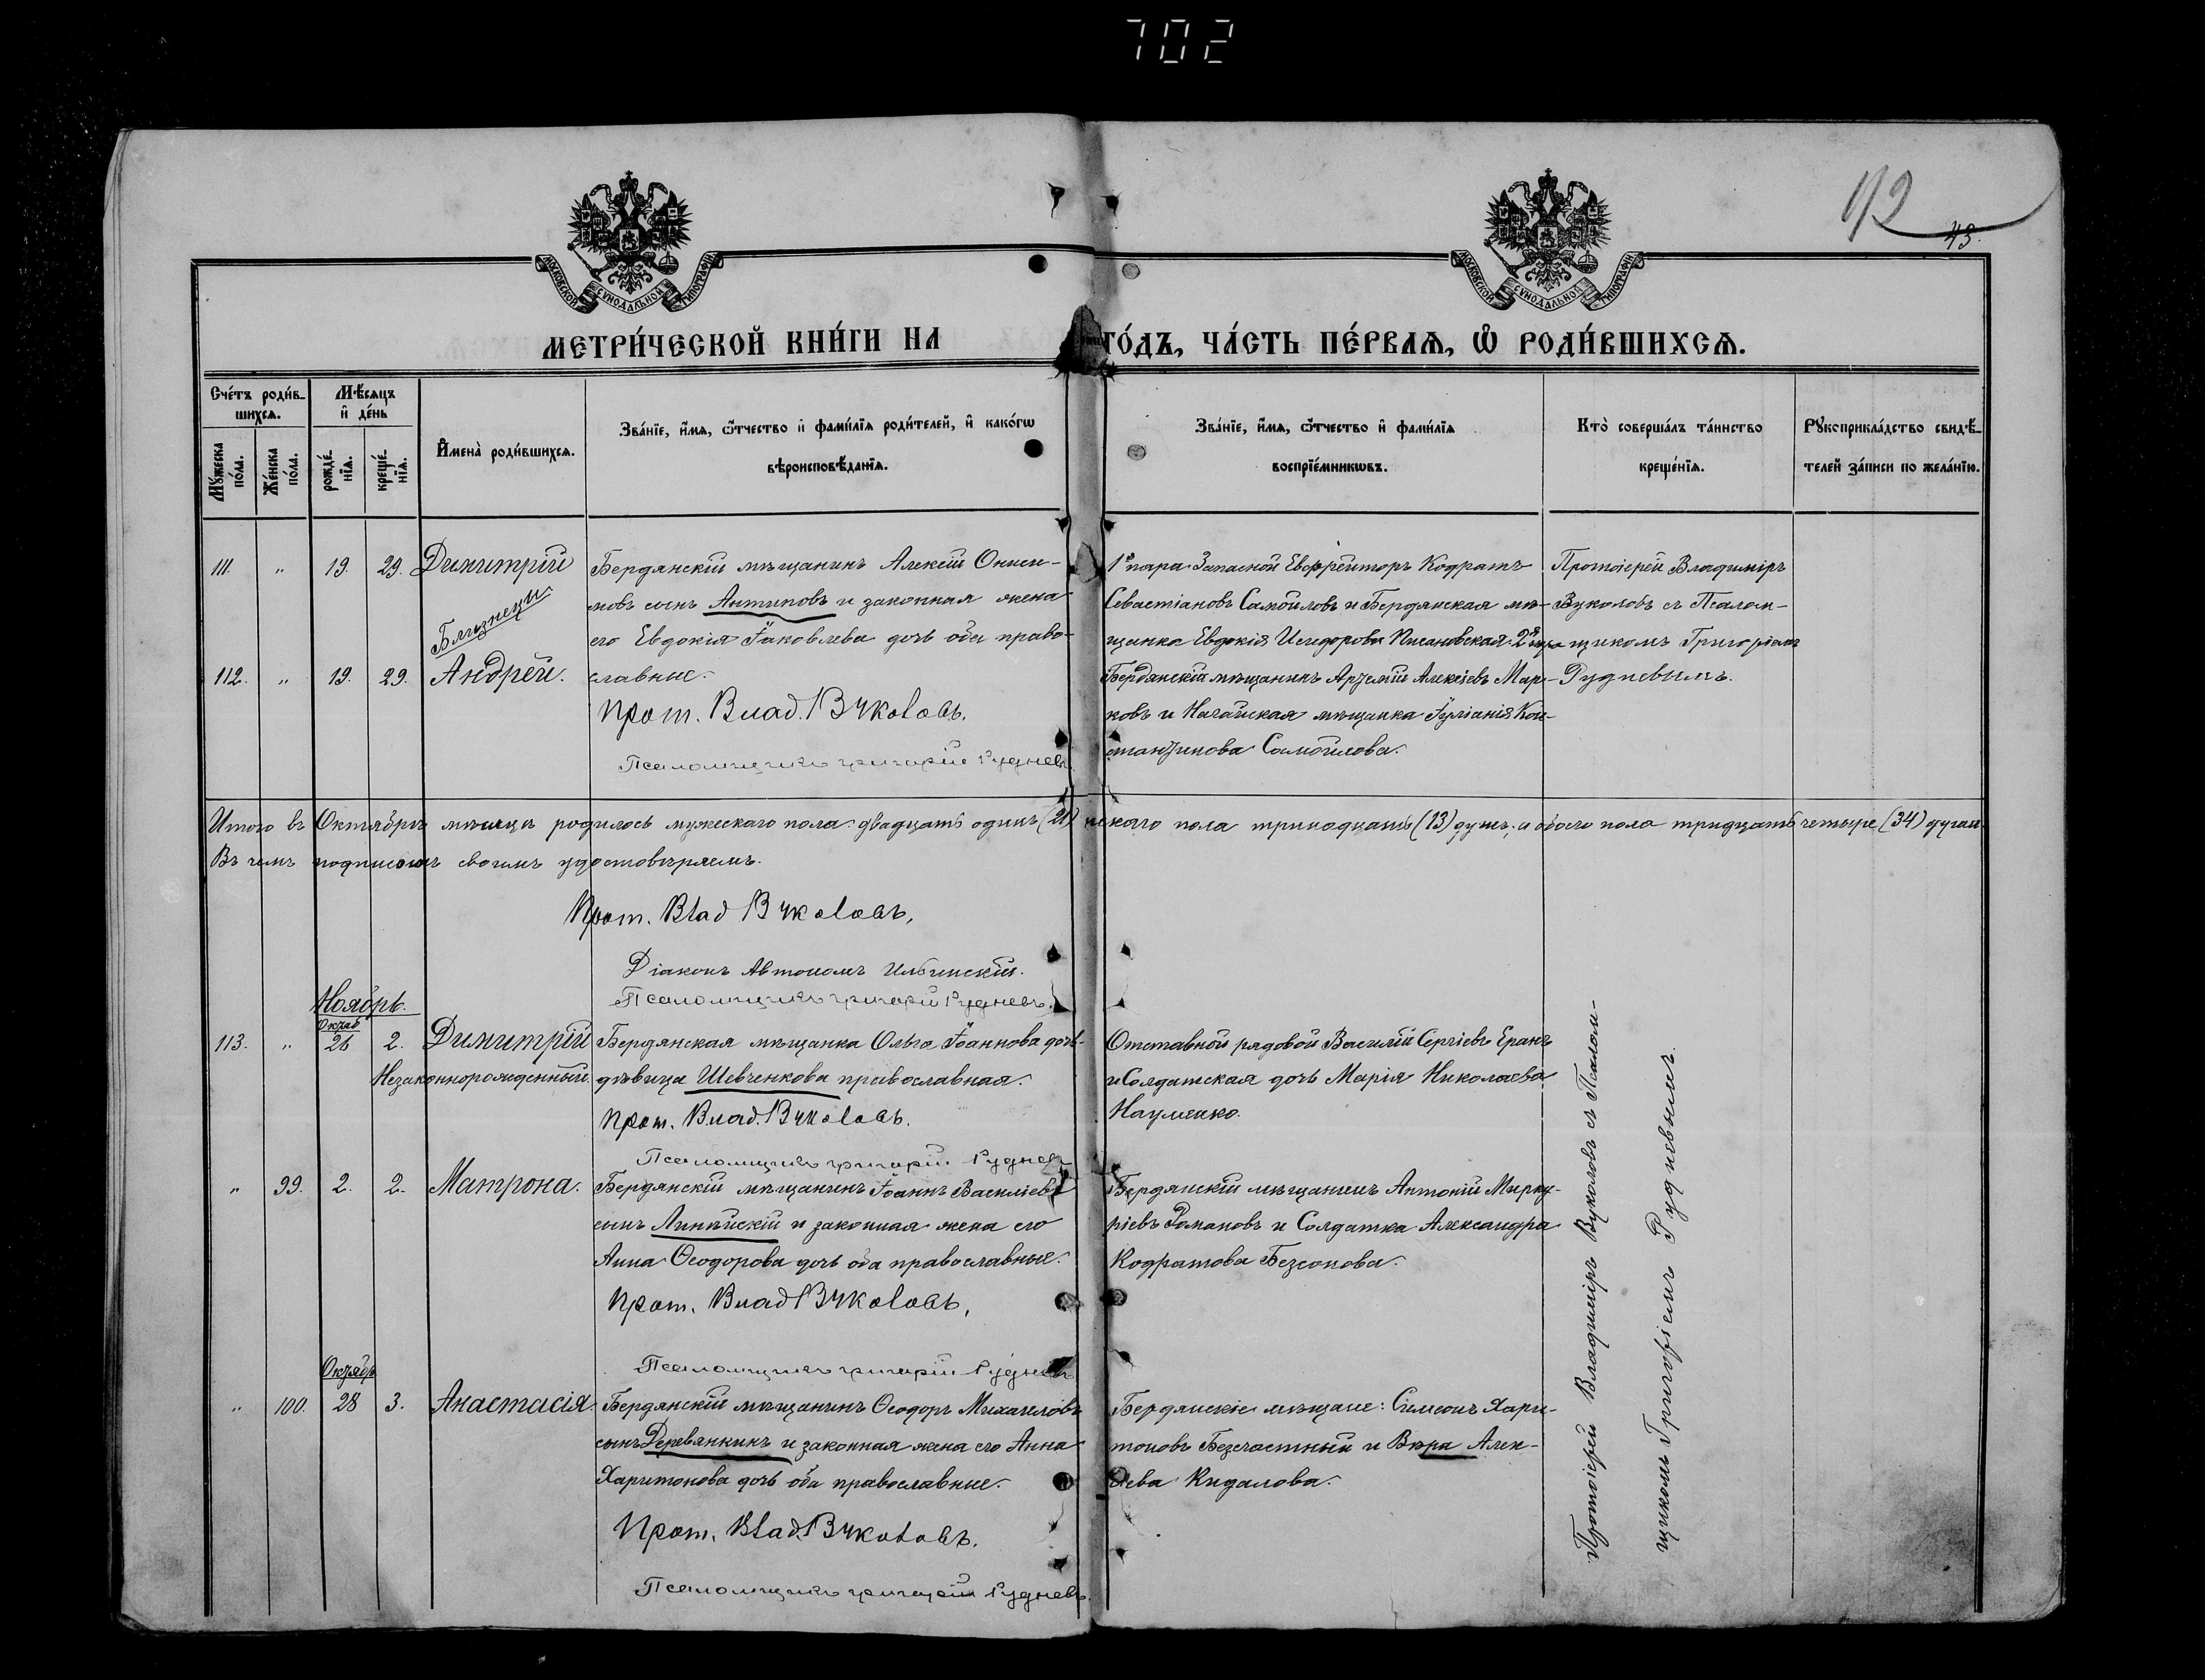 702
112
43.
МОСКОВСКОЙ СѴНОДАЛЬНОЙ ТИПОГРАФІИ
МОСКОВСКОЙ СѴНОДАЛЬНОЙ ТИПОГРАФІИ
МЕТРИ́ЧЕСКОЙ КНИ́ГИ НА ГО́ДЪ, ЧА́СТЬ ПЕ́РВАѦ, Ѽ РОДИ́ВШИХСѦ.
Сче́тъ роди́в-
шихсѧ.
Мѣ́сѧцъ
и҆ де́нь
Мꙋ́жеска
по́ла.
Же́нска
по́ла.
рожде́-
нїѧ.
креще́-
нїѧ.
И҆мена̀ роди́вшихсѧ.
Зва́нїе, и҆́мѧ, ѻ҆́тчество и҆ фами́лїѧ роди́телей, и҆ како́гѡ
вѣроисповѣ́данїѧ.
Зва́нїе, и҆́мѧ, ѻ҆́тчество и҆ фами́лїѧ
воспрїе́мникѡвъ.
Кто̀ соверша́лъ та́инство
креще́нїѧ.
Рꙋкоприкла́дство свидѣ́-
телей за́писи по жела́нїю.
111. „ 19. 29. Димитрій
Близнецы
112. „ 19. 29. Андрей.
Бердянскій мѣщанинъ Алексій Ониси-
мовъ сынъ Антиповъ и законная жена
его Евдокія Іаковлева дочь оба право-
славные.
Прот. Влад. Вуколовъ.
Псаломщикъ Григорій Рудневъ
1я пара Запасной Ефрейторъ Кодратъ
Севастіановъ Самойловъ и Бердянская мѣ-
щанка Евдокія Исидорова Писановская. 2я пара
Бердянскій мѣщанинъ Артемій Алексіевъ Мар-
ковъ и Ногайская мѣщанка Іуліанія Кон-
стантинова Самойлова.
Протоіерей Владиміръ
Вуколовъ съ Псалом-
щикомъ Григоріемъ
Рудневымъ.
Итого въ Октябрѣ мѣсяцѣ родилось мужескаго пола двадцать одинъ (21) нскаго пола тринадцать (13) душъ, а обоего пола тридцать четыре (34) души.
Въ чемъ подписомъ своимъ удостовѣряемъ.
Прот. Влад Вуколовъ.
Діаконъ Автономъ Ильинскій.
Псаломщикъ Григорій Рудневъ.
Ноябрь.
Октяб
113. „ 26 2. Димитрій
Незаконнорожденный.
Бердянская мѣщанка Ольга Іоаннова дочь-
дѣвица Шевченкова православная.
Прот. Влад. Вуколовъ.
Псаломщикъ Григорій Рудневъ
Отставной рядовой Василій Сергіевъ Еранъ
и Солдатская дочь Марія Николаева
Науменко.
„ 99. 2. 2. Матрона.
Бердянскій мѣщанинъ Іоаннъ Василіевъ
сынъ Линѣйскій и законная жена его
Анна Ѳеодорова дочь оба православные.
Прот. Влад Вуколовъ.
Псаломщикъ Григорій Рудневъ
Бердянскій мѣщанинъ Антоній Мирку-
ріевъ Романовъ и Солдатка Александра
Кодратова Безсонова.
Октябр
„ 100. 28 3. Анастасія.
Бердянскій мѣщанинъ Ѳеодоръ Михаиловъ
сынъ Деревянкинъ и законная жена его Анна
Харитонова дочь оба православные.
Прот. Влад. Вуколовъ.
Псаломщикъ Григорій Рудневъ.
Бердянскіе мѣщане: Симеонъ Хари-
тоновъ Безсчастный и Вѣра Алек-
сѣева Кидалова.
Протоіерей Владиміръ Вуколовъ съ Псалом-
щикомъ Григоріемъ Рудневымъ.